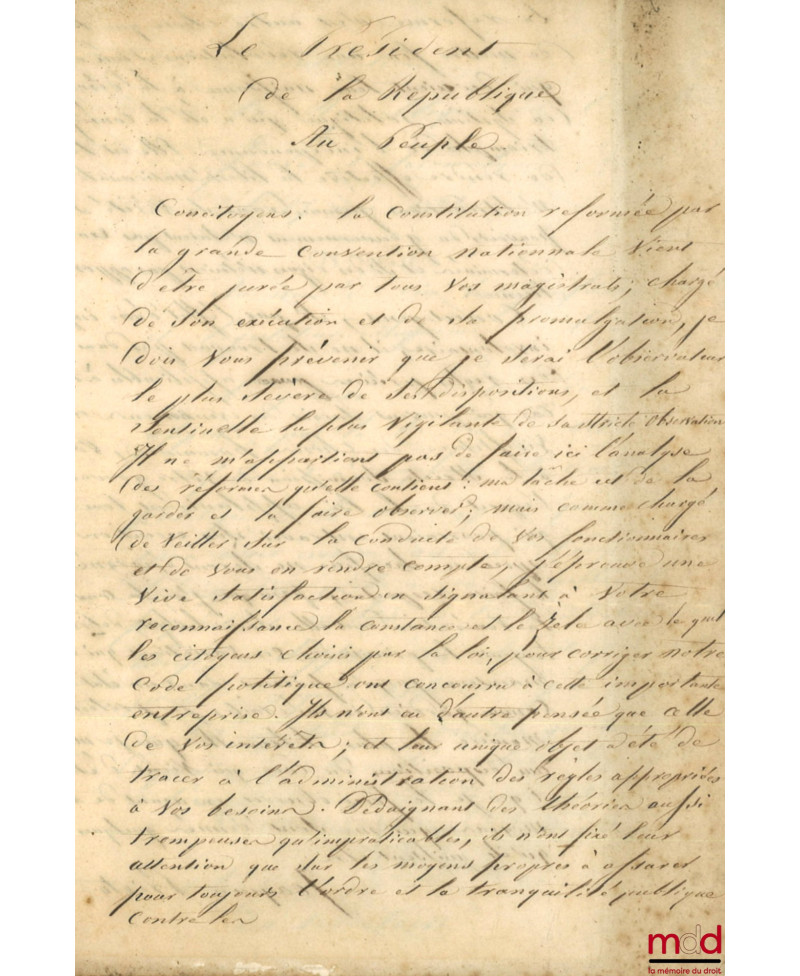 Le Président
de la République
Au Peuple
Concitoyens. la Constitution reformée par
la grande convention nationnale vient
d'être jurée par tous vos magistrats; chargé
de son exécution et de sa promulgation, je
dois vous prévenir que je serai l'observateur
le plus sévère de ses dispositions, et la
sentinelle la plus vigilante de sa stricte observation
Il ne m'appartient pas de faire ici l'analyse
des réformes qu'elle contient: ma tâche est de la
garder et la faire observer; mais comme chargé
de veiller sur la conduite de vos fonctionnaires
et de vous en rendre compte, j'éprouve une
vive satisfaction en signalant à votre
reconnaissance la constance et le zèle avec lequel
les citoyens choisis par la loi, pour corriger notre
Code politique ont concourru à cette importante
entreprise. Ils n'ont eu d'autre pensée que celle
de vos intérêts; et leur unique objet a été de
tracer à l'administration des règles appropriées
à vos besoins. Dédaignant des théories aussi
trompeuses qu'impraticables, ils n'ont fixé leur
attention que sur les moyens propres à assurer
pour toujours l'ordre et la tranquilité publique
contre les
mdd
la mémoire du droit